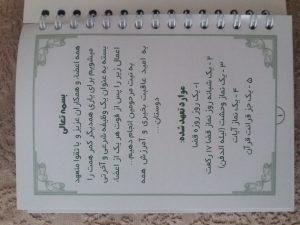 بسمه تعالی
همه اعضاء و همکاران عزیز و با تقوا متعهد
میشویم برای یاری همدیگر کمر همت را
بسته به عنوان یک وظیفه شرعی و آخرتی
اعمال زیر را پس از فوت هر یک از اعضاء
به نیت مرحومین انجام دهیم...
به امید عاقبت بخیری و آمرزش همه
دوستان...
موارد تعهد شده:
۱- یک روز روزه قضا
۲- یک شبانه روز نماز قضا ۱۷ رکعت
۳- یک نماز وحشت (لیلة الدفن)
۴- یک نماز آیات
۵- یک جزء قرائت قرآن